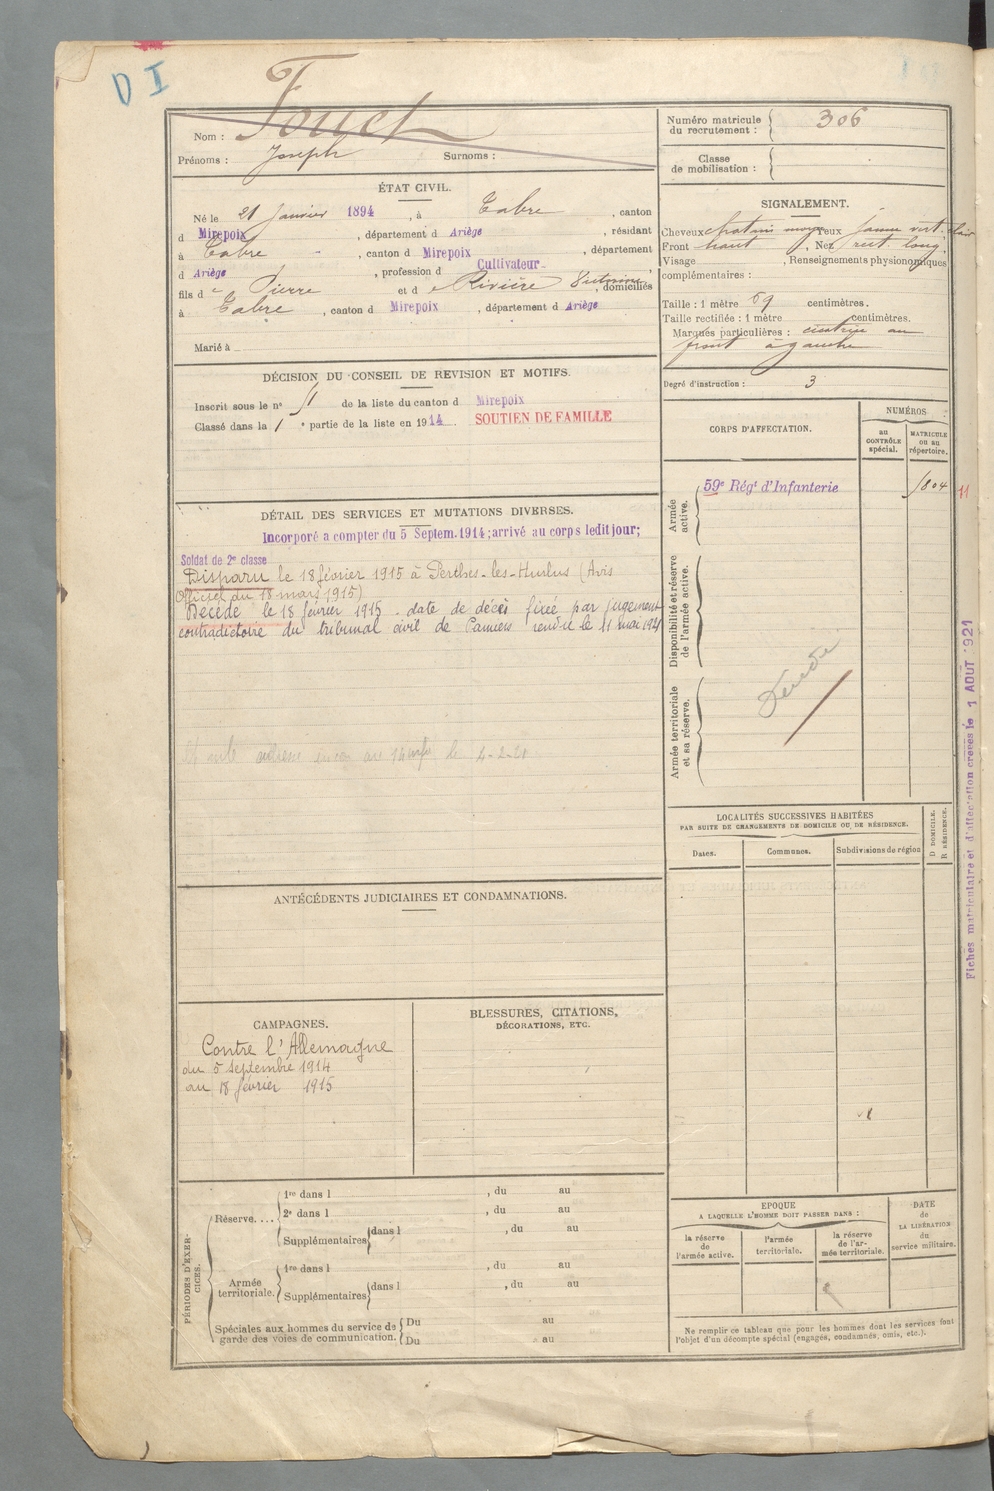 D I
Nom : Fouet
Prénoms : Joseph Surnoms :
ÉTAT CIVIL.
Né le 21 Janvier 1894, à Cabre, canton
d Mirepoix, département d Ariège, résidant
à Cabre, canton d Mirepoix, département
d Ariège, profession d Cultivateur
fils de Pierre et de Rivière, domiciliés
à Cabre, canton d Mirepoix, département d Ariège
Marié à
DÉCISION DU CONSEIL DE REVISION ET MOTIFS.
Inscrit sous le n° 51 de la liste du canton d Mirepoix
Classé dans la 1e partie de la liste en 1914. SOUTIEN DE FAMILLE
DÉTAIL DES SERVICES ET MUTATIONS DIVERSES.
Incorporé a compter du 5 Septem. 1914; arrivé au corps ledit jour;
Soldat de 2e classe
Disparu le 18 février 1915 à Perthes-les-Hurlus (Avis
Officiel du 18 mars 1915)
Décédé le 18 février 1915. date de décès fixée par jugement
contradictoire du tribunal civil de Pamiers rendu le 11 mai 1921
le 4-2-21
ANTÉCÉDENTS JUDICIAIRES ET CONDAMNATIONS.
CAMPAGNES.
Contre l'Allemagne
du 5 septembre 1914
au 18 février 1915
BLESSURES, CITATIONS,
DÉCORATIONS, ETC.
PÉRIODES D'EXER-
CICES.
Réserve....
1re dans l , du au
2e dans l , du au
Supplémentaires dans l , du au
Armée
territoriale.
1re dans l , du au
Supplémentaires dans l , du au
Spéciales aux hommes du service de
garde des voies de communication.
Du au
Du au
Numéro matricule
du recrutement : 306
Classe
de mobilisation :
SIGNALEMENT.
Cheveux chatain moy Yeux jaune vert. clair
Front haut, Nez rect. long.
Visage , Renseignements physionomiques
complémentaires :
Taille : 1 mètre 69 centimètres.
Taille rectifiée : 1 mètre centimètres.
Marques particulières : cicatrice au
front à gauche
Degré d'instruction : 3
CORPS D'AFFECTATION.
NUMÉROS
au
CONTRÔLE
spécial.
MATRICULE
ou au
répertoire.
Armée
active.
59e Régt d'Infanterie 1804
11
Disponibilité et réserve
de l'armée active.
Armée territoriale
et sa réserve.
LOCALITÉS SUCCESSIVES HABITÉES
PAR SUITE DE CHANGEMENTS DE DOMICILE OU DE RÉSIDENCE.
Dates. Communes. Subdivisions de région
D DOMICILE.
R RÉSIDENCE.
EPOQUE
A LAQUELLE L'HOMME DOIT PASSER DANS :
la réserve
de
l'armée active.
l'armée
territoriale.
la réserve
de l'ar-
mée territoriale.
DATE
de
LA LIBÉRATION
du
service militaire.
Ne remplir ce tableau que pour les hommes dont les services font
l'objet d'un décompte spécial (engagés, condamnés, omis, etc.).
Fiches matriculaire et d'affectation creées le 1 AOUT 1921